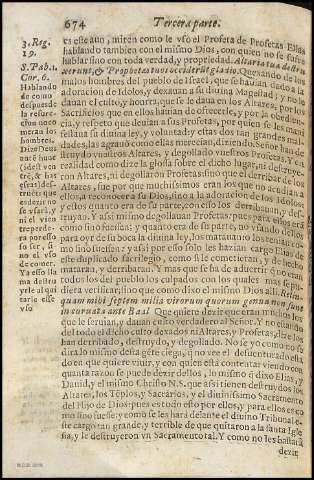 674 Tercera parte.
3. Reg.
19.
S. Pab. 1.
Cor. 6.
Hablando
de como
despues de
la resure-
cion no co-
meran los
hombres.
Dize Deus
aut è hunc
(idest vs
trè, & has
escas) des-
truct: que
dezir no
se vsará, y
ni el vien
tre perde-
ra por esso
su ser, si
no el vso
de comer.
Ya esso lla
ma destru
yrle al qui
tarle esse
vso
es este aun, miren como le vsó el Profeta de Profetas Elias
hablando tambien con el mismo Dios, con quien no se sufre
hablar sino con toda verdad, y propriedad. Altaria tua destru
xerunt, & Prophetas tuos occiderũt gladio. Quexando de los
malos hombres del pueblo de Israel, que se hauian dado a la
adoracion de Idolos, y dexauan a su diuina Magestad, y no le
dauan el culto, y honrra, que se le daua en los Altares, por los
Sacrificios que en ellos hauian de ofrecerle, y por la obedien-
cia, y respecto que deuian a sus Profetas; por quien les mani-
festaua su diuina ley, y voluntad; y estas dos tan grandes mal-
dades, las agrauó como ellas merecian, diziendo. Señor han des
truydo vuestros Altares, y degollado vuestros Profetas. Y en
realidad como dize la glosa sobre el dicho lugar, ni destruye-
ron Altares, ni degollaron Profetas: sino que el derribar de los
Altares, fue por que muchissimos eran los que no acudian a
ellos, a reconocer a su Dios, sino a la adoracion de los Idolos:
y estos quanto era de su parte, con esso los derribauan, y des-
truyan. Y assi mismo degollauan Profetas: pues para ellos era
como sino fuessen: y quanto era de su parte, no
oyr de su boca la diuina ley, los matauan:
mo sino fuessen: y assi por esso solo les hazian cargo Elias de
este duplicado sacrilegio, como si le cometieran, y de hecho
mataran, y derribaran. Y mas que se ha de aduertir q̃ no eran
todos los del pueblo los culpados, con los quales mas se pu-
diera verificar; sino que como dixo el mismo Dios alli. Relin-
quam mihi septem milia virorum quorum genua non sunt
incuruata ante Baal. Que quiere dezir que eran muchos los
que le seruian, y dauan culto verdadero al Señor. Y no quando
del todo el dicho culto dexado ni Altares, y Profetas, dize los
han derribado, destruydo, y degollado. No se yo como no su
dira lo mismo desta gẽte ciega, q̃ no vee el desuenturado esta
do en que quiere viuir, y con quien está contentar viendo con
quanta razon se puede dezir dellos, lo mismo q̃ dixo Elias, y
Dauid, y el mismo Christo N. S. que assi tienen destruydos los
Altares, los Tẽplos, y Sacrarios, y el diuinissimo Sacramento
del Hijo de Dios: pues es todo esto por ellos, y para ellos es co
mo sino fuesse: y como se les hará delante el diuino Tribunal es-
te cargo tan grande, y terrible de que quitaron a la santa Igle
sia, y le destruyeron vn Sacramental. Y como no les bastará
dezir